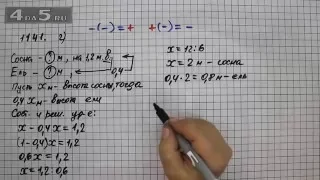 4DA5.RU
1141. 2)
-(-)=+ +(-)=-
Сосна - ? м, на 1,2 м В.
Ель - ? м, 0,4
Пусть x м - высота сосны, тогда
0,4x м - высота ели
Сост. и реш. ур-е:
x - 0,4x = 1,2
(1-0,4)x = 1,2
0,6x = 1,2
x = 1,2 : 0,6
x = 12:6
x = 2 м - сосна
0,4·2 = 0,8 м - ель